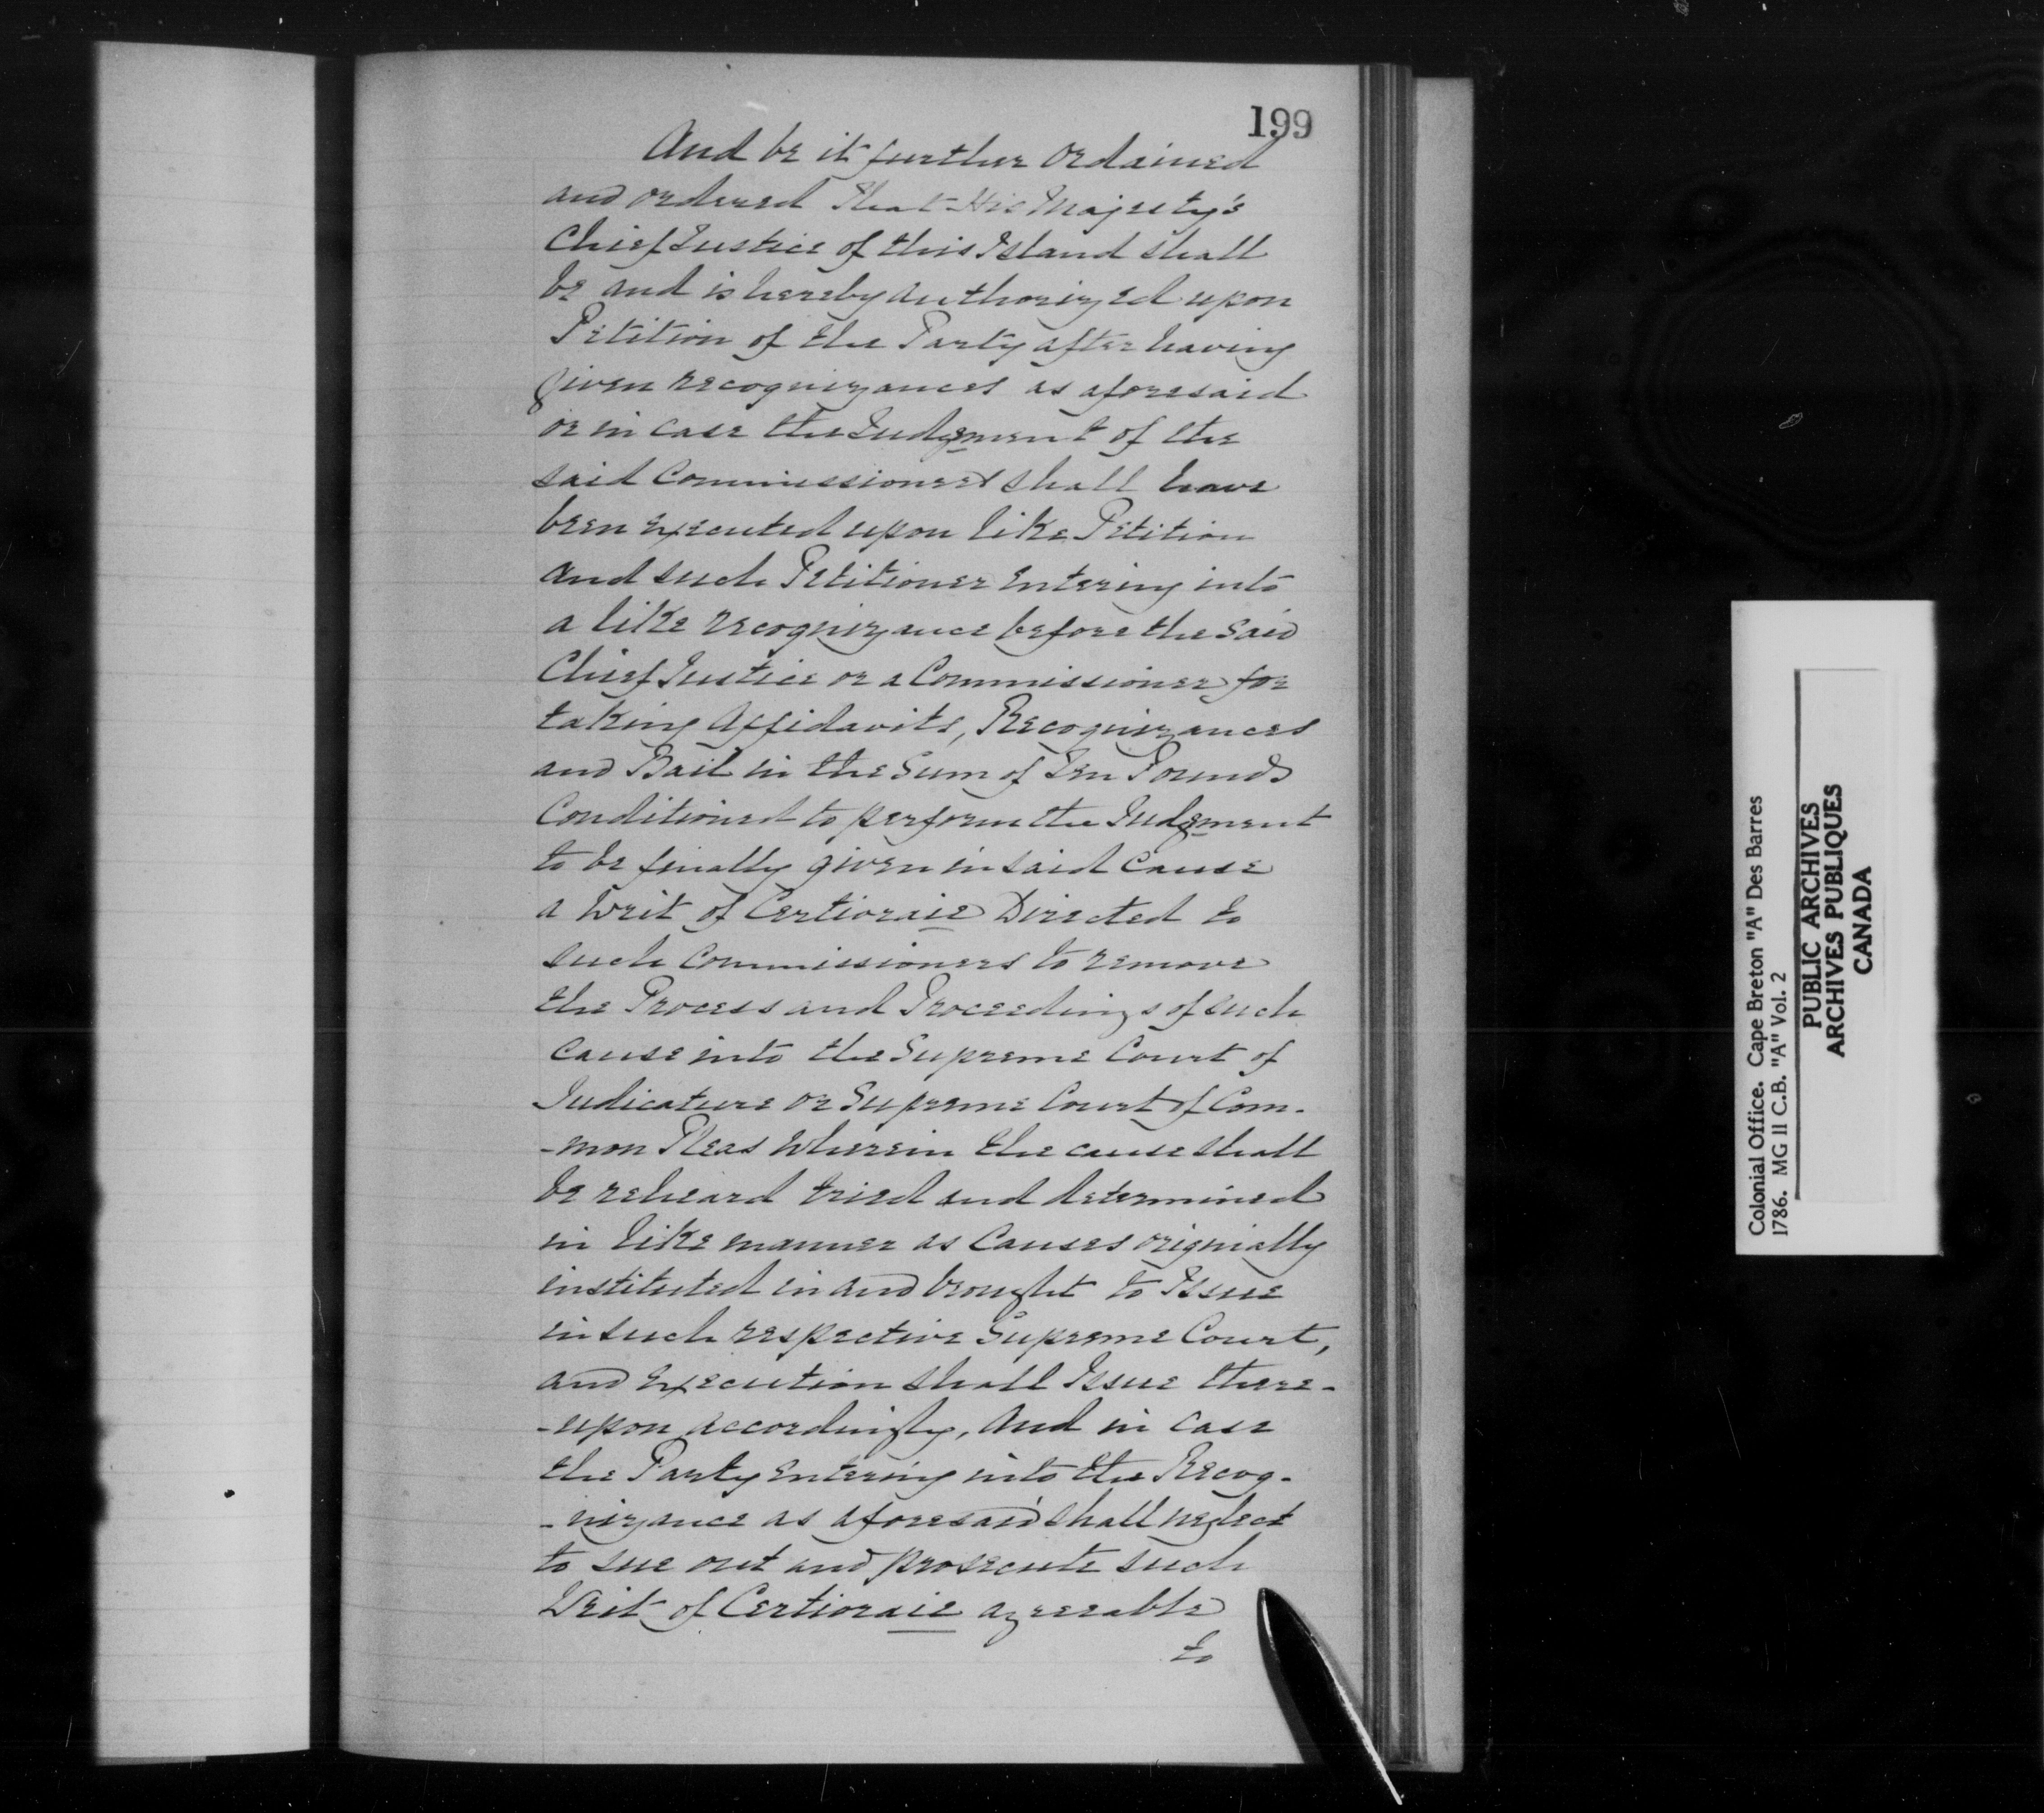 199
And be it further ordained
and ordered that His Majesty's
Chief Justice of this Island shall
be and is hereby authorized upon
Petition of the Party after having
given recognizances as aforesaid
or in case the Judgment of the
said Commissioners shall have
been executed upon like Petition
and such Petitioner entering into
a like recognizance before the said
Chief Justice or a Commissioner for
taking Affidavits, Recognizances
and Bail in the Sum of Ten Pounds
Conditioned to perform the Judgment
to be finally given in said Cause
a Writ of Certioraie Directed to
such Commissioners to remove
the Process and Proceedings of such
cause into the Supreme Court of
Judicature or Supreme Court of Com-
-mon Pleas wherein the cause shall
be reheard tried and determined
in like manner as Causes originally
instituted in and brought to Issue
in such respective Supreme Court,
and Execution shall Issue there-
-upon accordingly, And in case
the Party entering into the Recog-
-nizance as aforesaid shall neglect
to sue out and prosecute such
Writ of Certioraie agreeable
to
Colonial Office. Cape Breton "A" Des Barres
1786. MG 11 C.B. "A" Vol. 2
PUBLIC ARCHIVES
ARCHIVES PUBLIQUES
CANADA